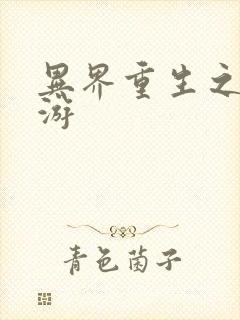 異界重生之
游
青色菌子